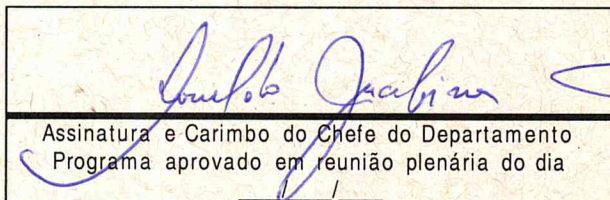 Assinatura e Carimbo do Chefe do Departamento
Programa aprovado em reunião plenária do dia
___/___/___